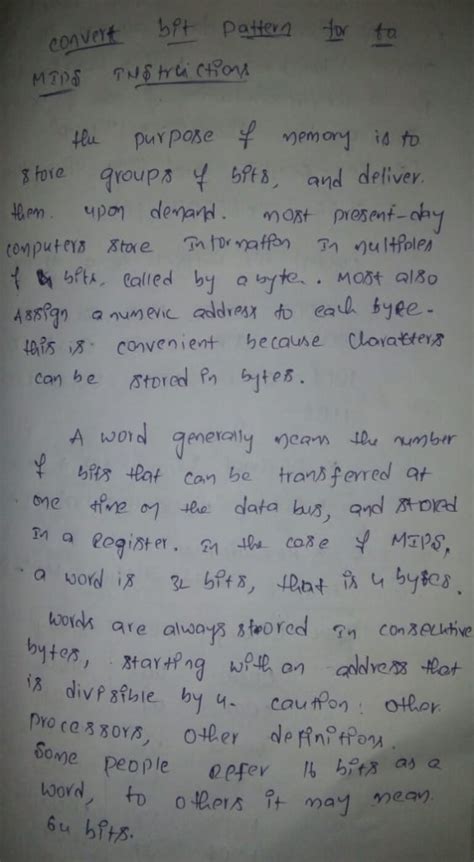 convert bit pattern for to
MIPS Instructions
the purpose of memory is to
store groups of bits, and deliver.
them. upon demand. most present-day
computers store Information In multiples
of 8 bits, called by a byte. Most also
Assign a numeric address to each byte.
this is convenient because characters
can be stored in bytes.
A word generally means the number
of bits that can be transferred at
one time on the data bus, and stored
In a Register. In the case of MIPS,
a word is 32 bits, that is 4 bytes.
words are always stoored In consecutive
bytes, starting with an address that
is divisible by 4. caution: other
processors, other definitions.
Some people Refer 16 bits as a
word, to others it may mean.
64 bits.